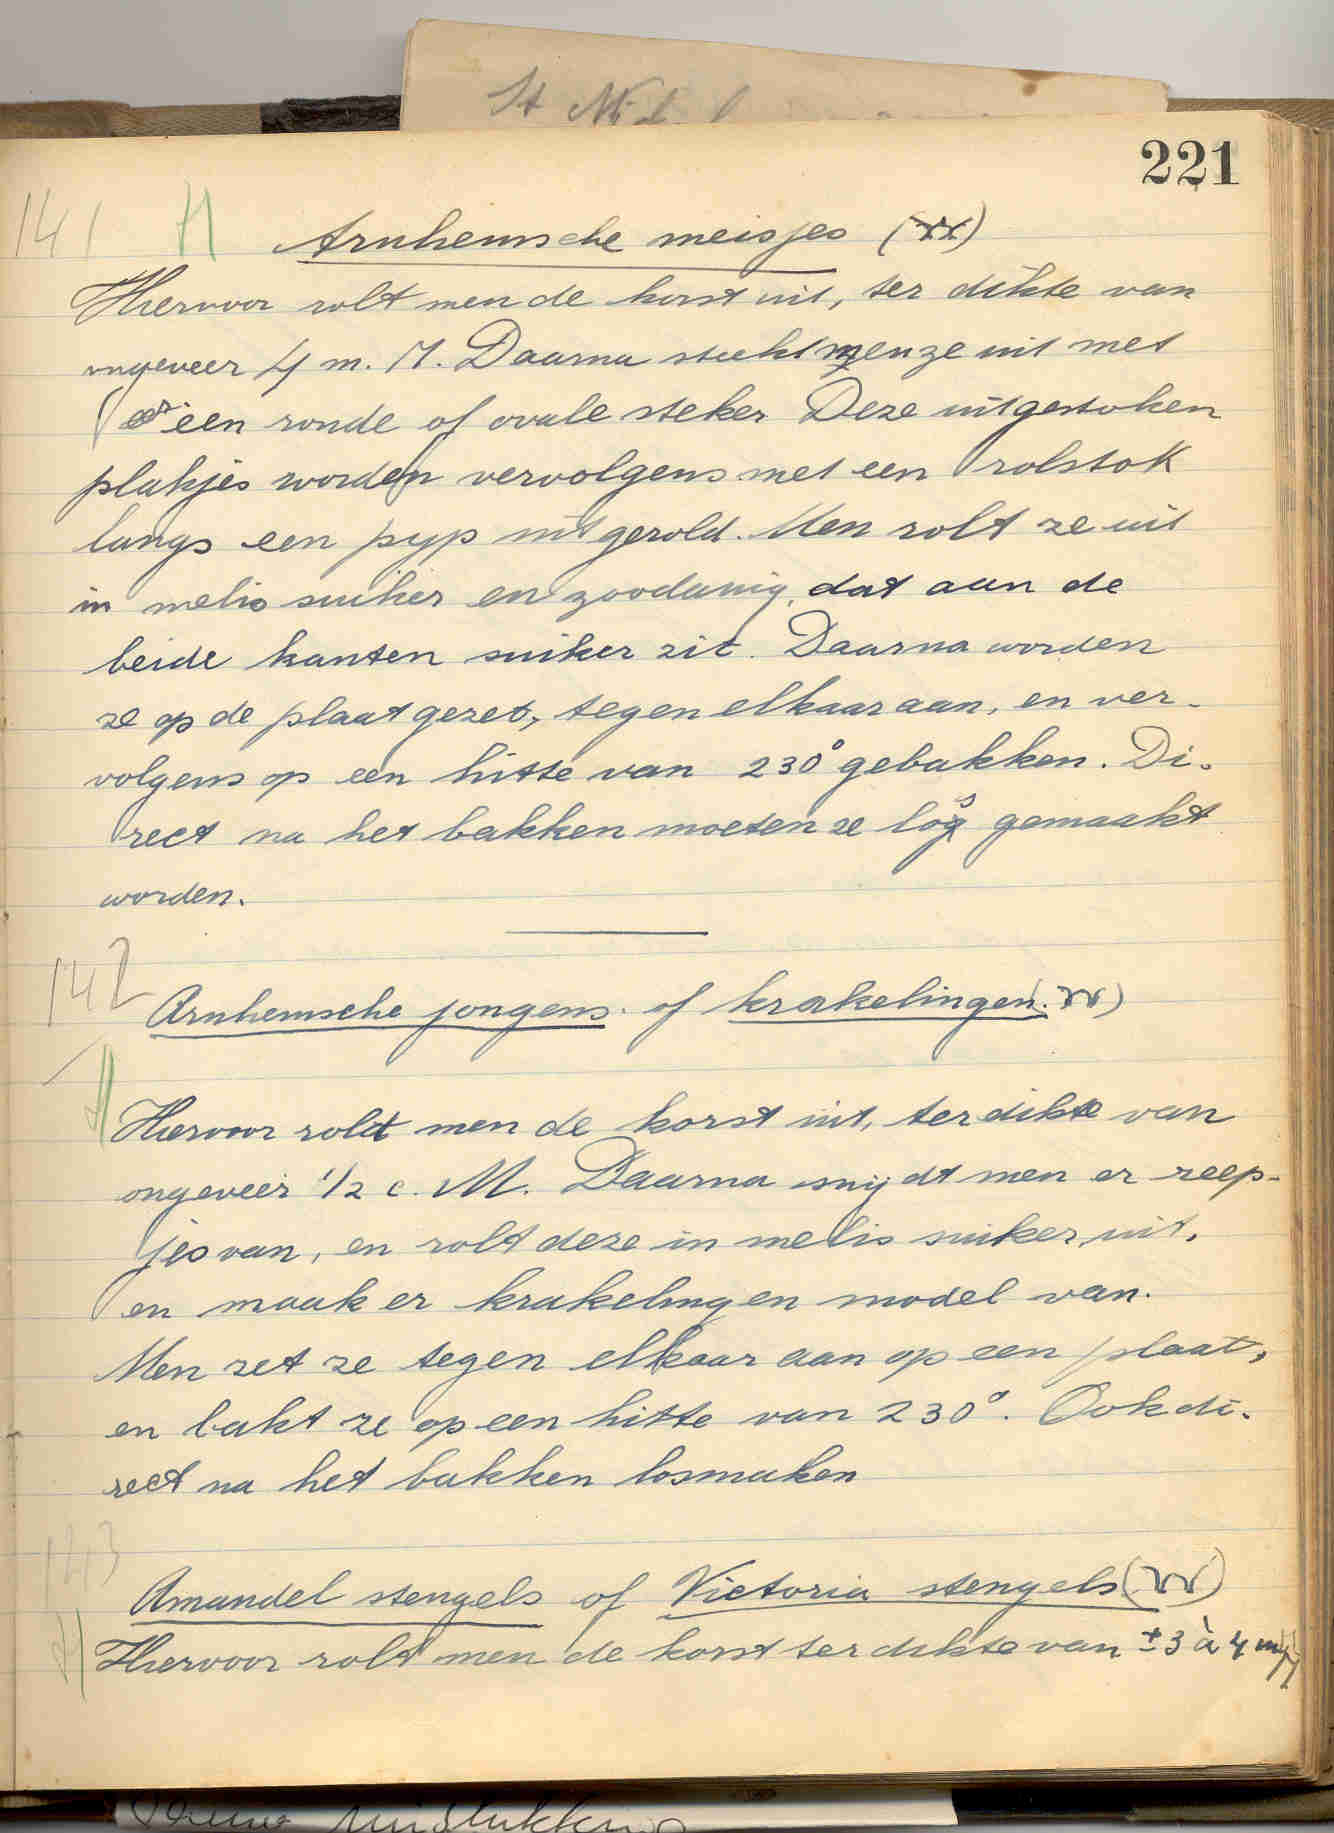 St
221
141 H Arnhemsche meisjes (W)
Hiervoor rolt men de korst uit, ter dikte van
ongeveer 4 m. M. Daarna steekt men ze uit met
een ronde of ovale steker Deze uitgestoken
plakjes worden vervolgens met een rolstok
langs een pyp uitgerold. Men rolt ze uit
in melis suiker en zoodanig, dat aan de
beide kanten suiker zit. Daarna worden
ze op de plaat gezet, tegen elkaar aan, en ver-
volgens op een hitte van 230° gebakken. Di-
rect na het bakken moeten ze los gemaakt
worden.
142
Arnhemsche jongens. of krakelingen. (W)
H
Hiervoor rolt men de korst uit, ter dikte van
ongeveer 1/2 c. M. Daarna snijdt men er reep-
jes van, en rolt deze in melis suiker, uit,
en maak er krakelingen model van.
Men zet ze tegen elkaar aan op een plaat,
en bakt ze op een hitte van 230°. Ook di-
rect na het bakken losmaken
143
Amandel stengels of Victoria stengels (W)
H Hiervoor rolt men de korst ter dikte van ± 3 à 4 m/M